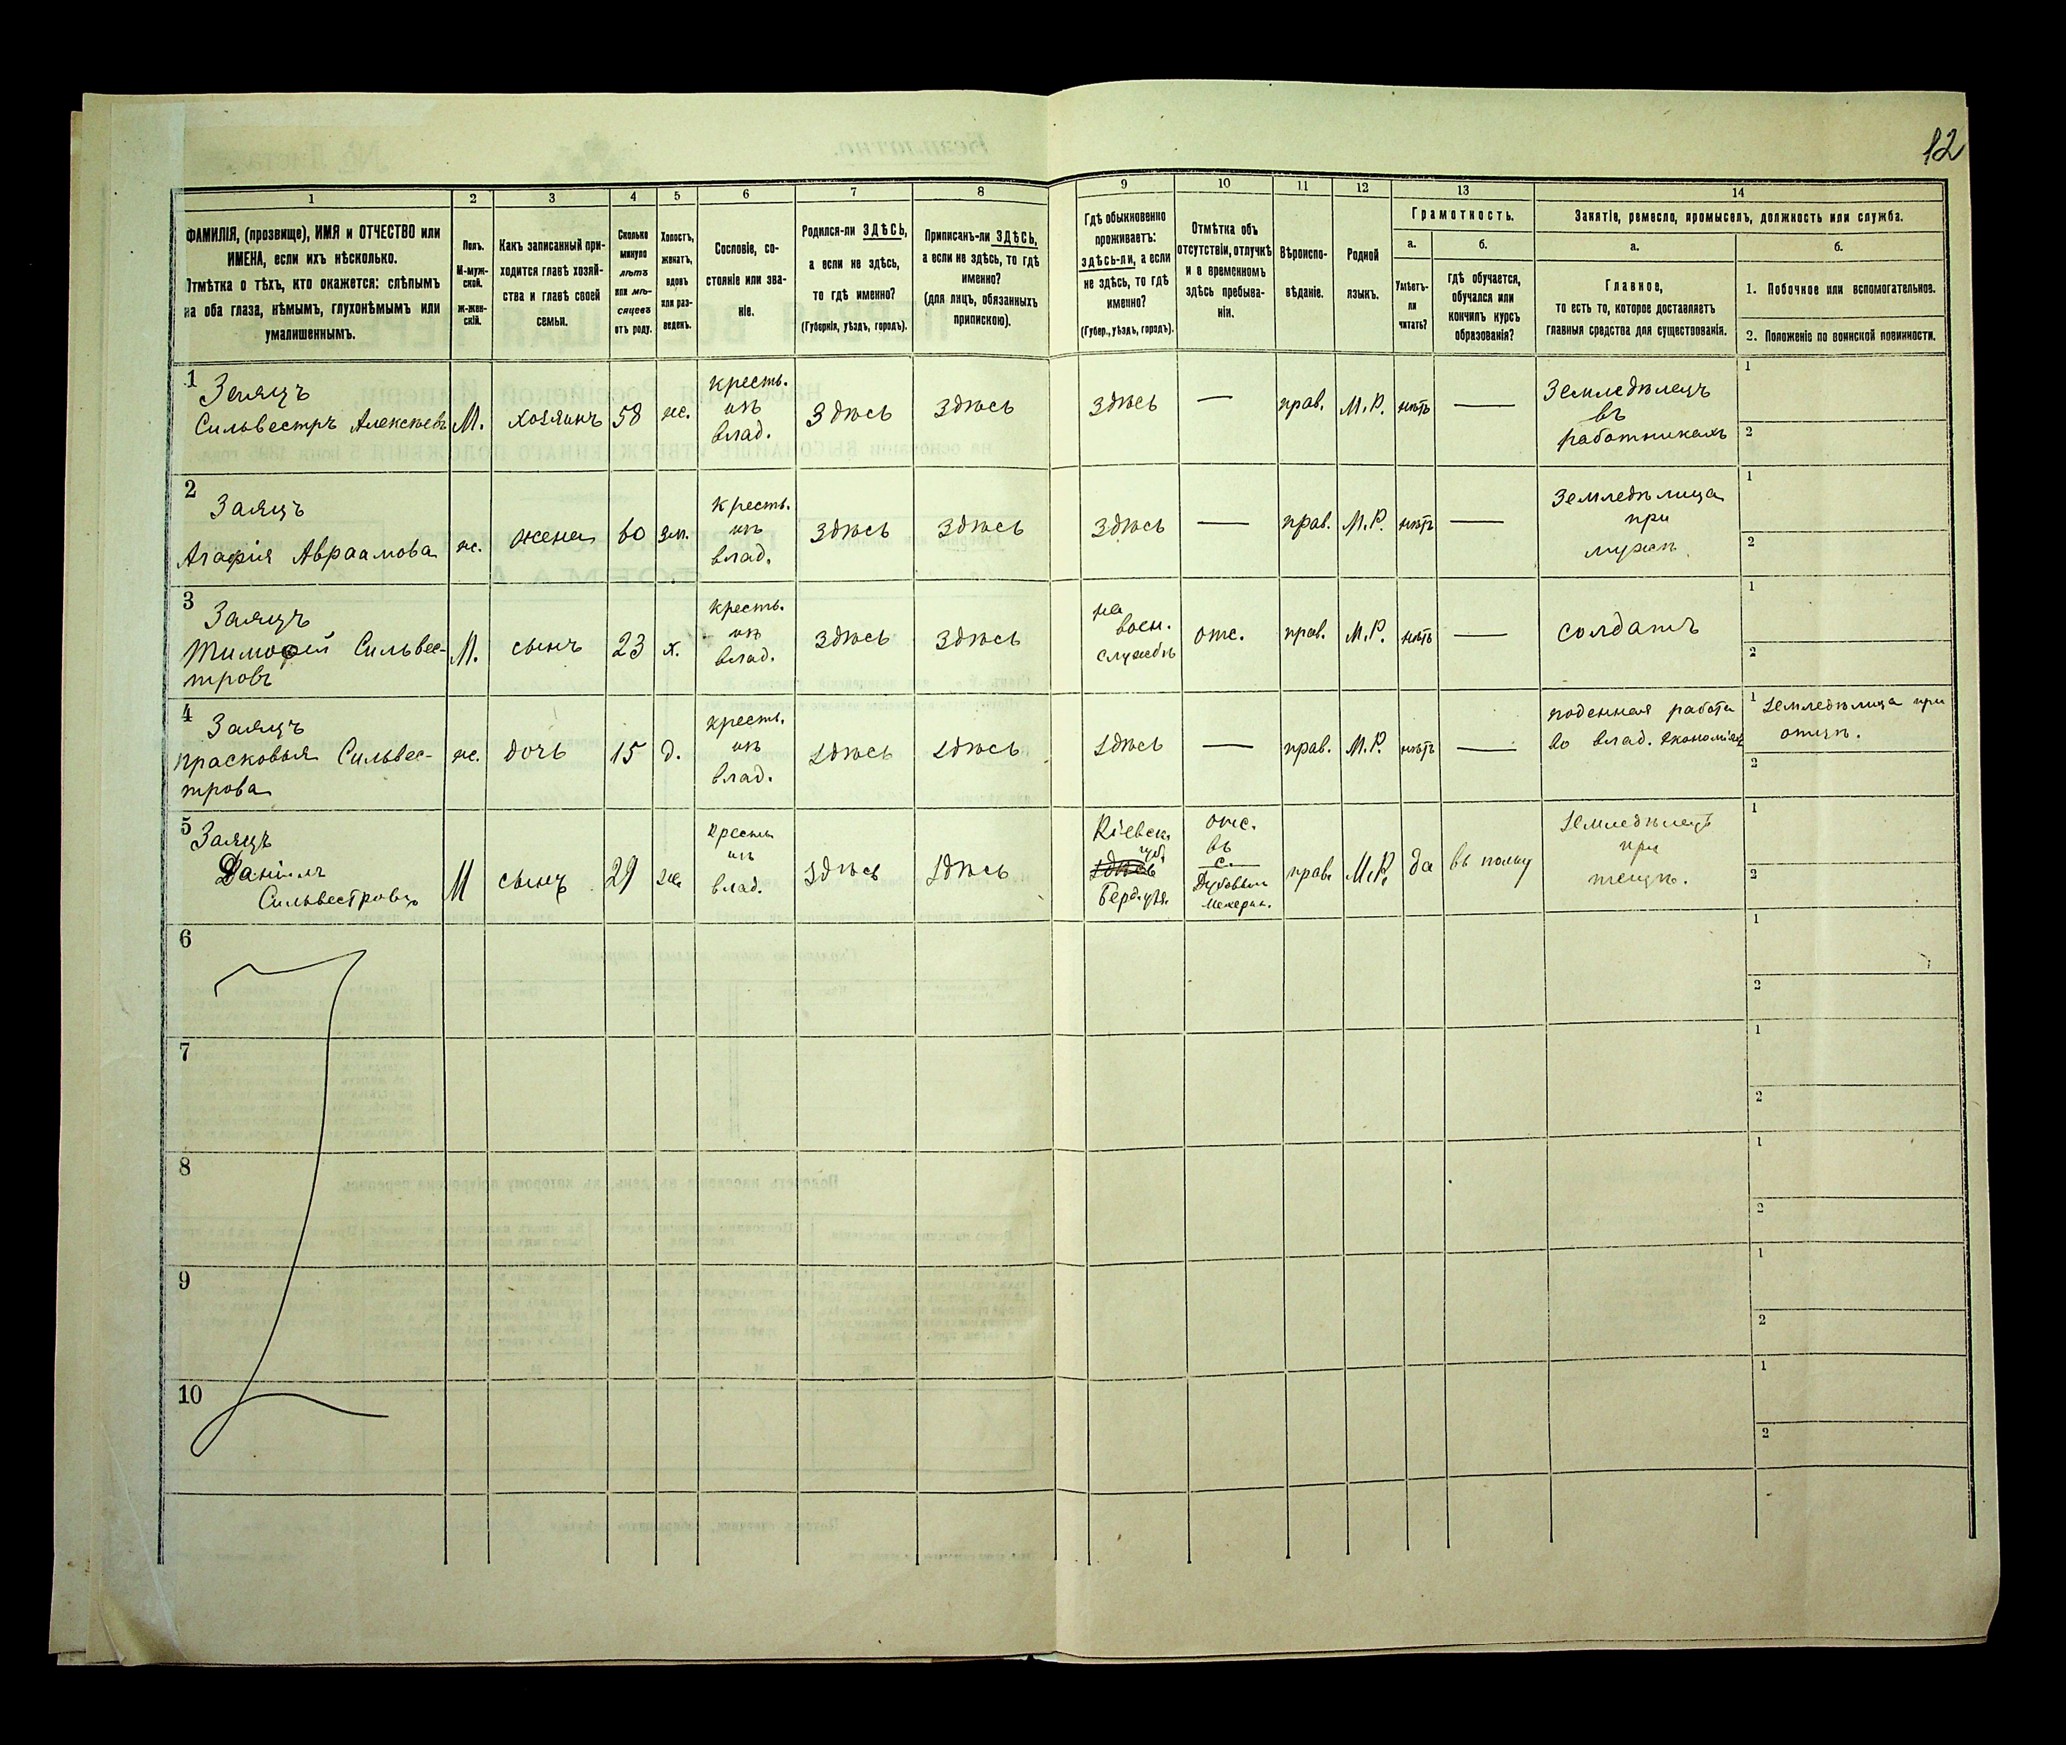 12
1 2 3 4 5 6 7 8 9 10 11 12 13 14
ФАМИЛІЯ, (прозвище), ИМЯ и ОТЧЕСТВО или
ИМЕНА, если ихъ нѣсколько.
Отмѣтка о тѣхъ, кто окажется: слѣпымъ
на оба глаза, нѣмымъ, глухонѣмымъ или
умалишеннымъ.
Полъ.
М-муж-
ской.
Ж-жен-
скій.
Какъ записанный при-
ходится главѣ хозяй-
ства и главѣ своей
семьи.
Сколько
минуло
лѣтъ
или мѣ-
сяцевъ
отъ роду.
Холостъ,
женатъ,
вдовъ
или раз-
веденъ.
Сословіе, со-
стояніе или зва-
ніе.
Родился-ли ЗДѢСЬ,
а если не здѣсь,
то гдѣ именно?
(Губернія, уѣздъ, городъ).
Приписанъ-ли ЗДѢСЬ,
а если не здѣсь, то гдѣ
именно?
(для лицъ, обязанныхъ
припискою).
Гдѣ обыкновенно
проживаетъ:
здѣсь-ли, а если
не здѣсь, то гдѣ
именно?
(Губер., уѣздъ, городъ).
Отмѣтка объ
отсутствіи, отлучкѣ
и о временномъ
здѣсь пребыва-
ніи.
Вѣроиспо-
вѣданіе.
Родной
языкъ.
Грамотность.
а.
Умѣетъ-
ли
читать?
б.
гдѣ обучается,
обучался или
кончилъ курсъ
образованія?
Занятіе, ремесло, промыселъ, должность или служба.
а.
Главное,
то есть то, которое доставляетъ
главныя средства для существованія.
б.
1. Побочное или вспомогательное.
2. Положеніе по воинской повинности.
1
Заяцъ
Сильвестръ Алексѣевъ
М.
хозяинъ
58
же.
кресть.
изъ
влад.
здѣсь
здѣсь
здѣсь
—
прав.
М.Р.
нѣтъ
—
Земледѣлецъ
въ
работникахъ
1
2
2
Заяцъ
Агафія Авраамова
же.
жена
60
зм.
кресть.
изъ
влад.
здѣсь
здѣсь
здѣсь
—
прав.
М.Р.
нѣтъ
—
Земледѣлица
при
мужѣ
1
2
3
Заяцъ
Тимофей Сильвес-
тровъ
М.
сынъ
23
х.
кресть.
изъ
влад.
здѣсь
здѣсь
на
воен.
службѣ
отс.
прав.
М.Р.
нѣтъ
—
солдатъ
1
2
4
Заяцъ
Прасковья Сильвес-
трова
же.
дочь
15
д.
кресть.
изъ
влад.
здѣсь
здѣсь
здѣсь
—
прав.
М.Р.
нѣтъ
—
поденная работа
во влад. экономіяхъ
1 земледѣлица при
отцѣ.
2
5
Заяцъ
Даніилъ
Сильвестровъ
М
сынъ
29
же
кресть
изъ
влад.
здѣсь
здѣсь
Кіевск.
губ.
здѣсь
Берд. уѣз.
отс.
въ
с.
прав.
М.Р.
да
въ полку
земледѣлецъ
при
тещѣ.
1
2
6
1
2
7
1
2
8
1
2
9
1
2
10
1
2